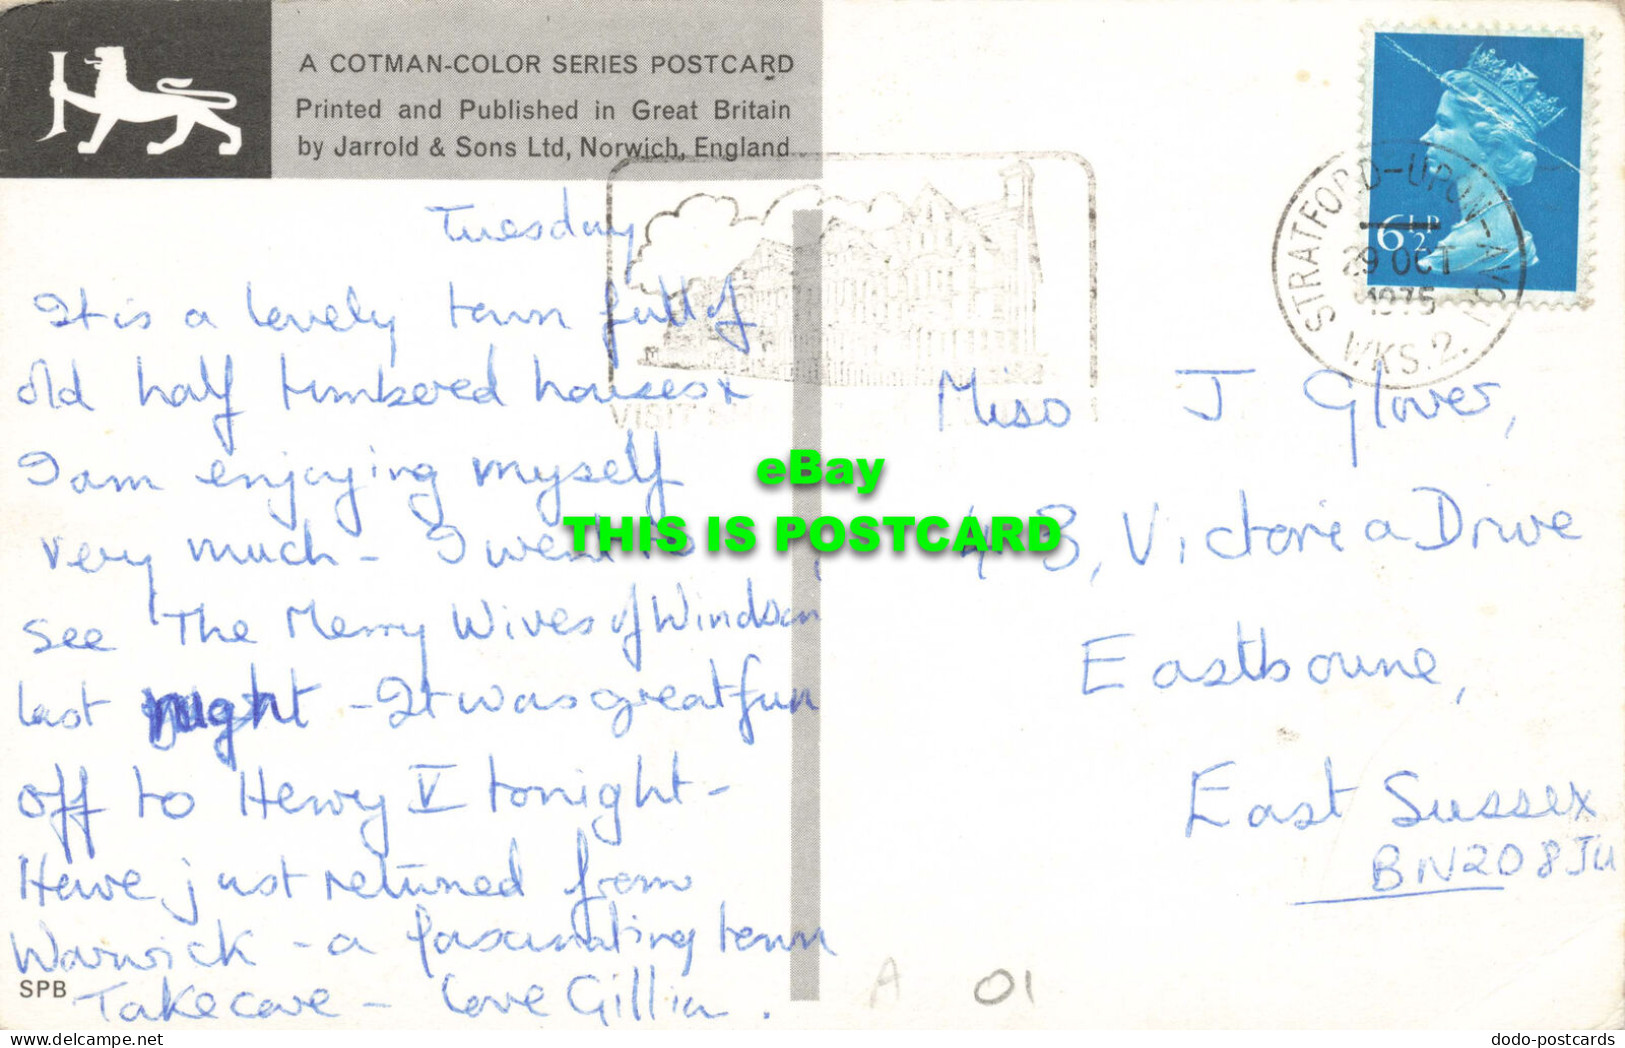 A COTMAN-COLOR SERIES POSTCARD
Printed and Published in Great Britain
by Jarrold & Sons Ltd, Norwich, England
Tuesday
It is a lovely town full of
old half timbered houses &
I am enjoying myself
very much - I went to
see The Merry Wives of Windsor
last night - It was great fun
off to Henry V tonight -
Have just returned from
Warwick - a fascinating town
Take care - Love Gillian.
SPB
6½P
STRATFORD-UPON-AVON
29 OCT
1975
WKS. 2.
VISIT
Miss J Glover,
4 B, Victoria Drive
Eastbourne,
East Sussex
BN20 8JU
A 01
eBay
THIS IS POSTCARD
dodo-postcards